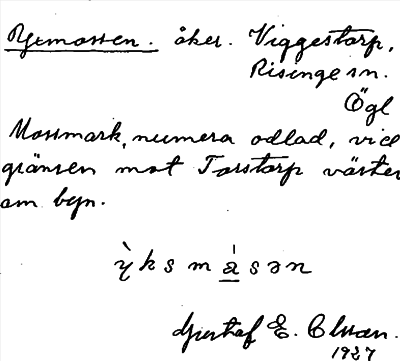 åker. Viggestorp,
Risinge sn.
Ögl
Mossmark, numera odlad, vid
gränsen mot Torstorp väster
om byn.
Gustaf E.
1927